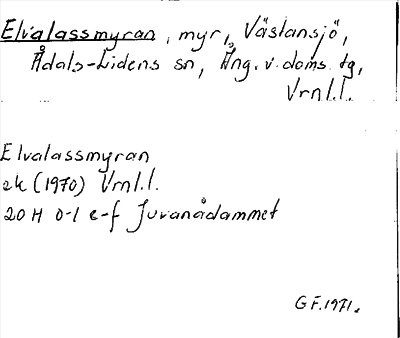 Elvalassmyran, myr, Västansjö,
Ådals-Lidens sn, Ång. v. doms. tg,
Vrnl.l.
Elvalassmyran
ek (1970) Vrnl.l.
20 H 0-1 e-f Juvanådammet
G F. 1971.